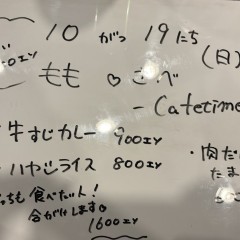 10がつ19にち(日)
もも♡さべ
- Cafetime
牛すじカレー 900エン
ハヤシライス 800エン
っちも食べたい人!
合がけします
1600エン
・肉だ
たま